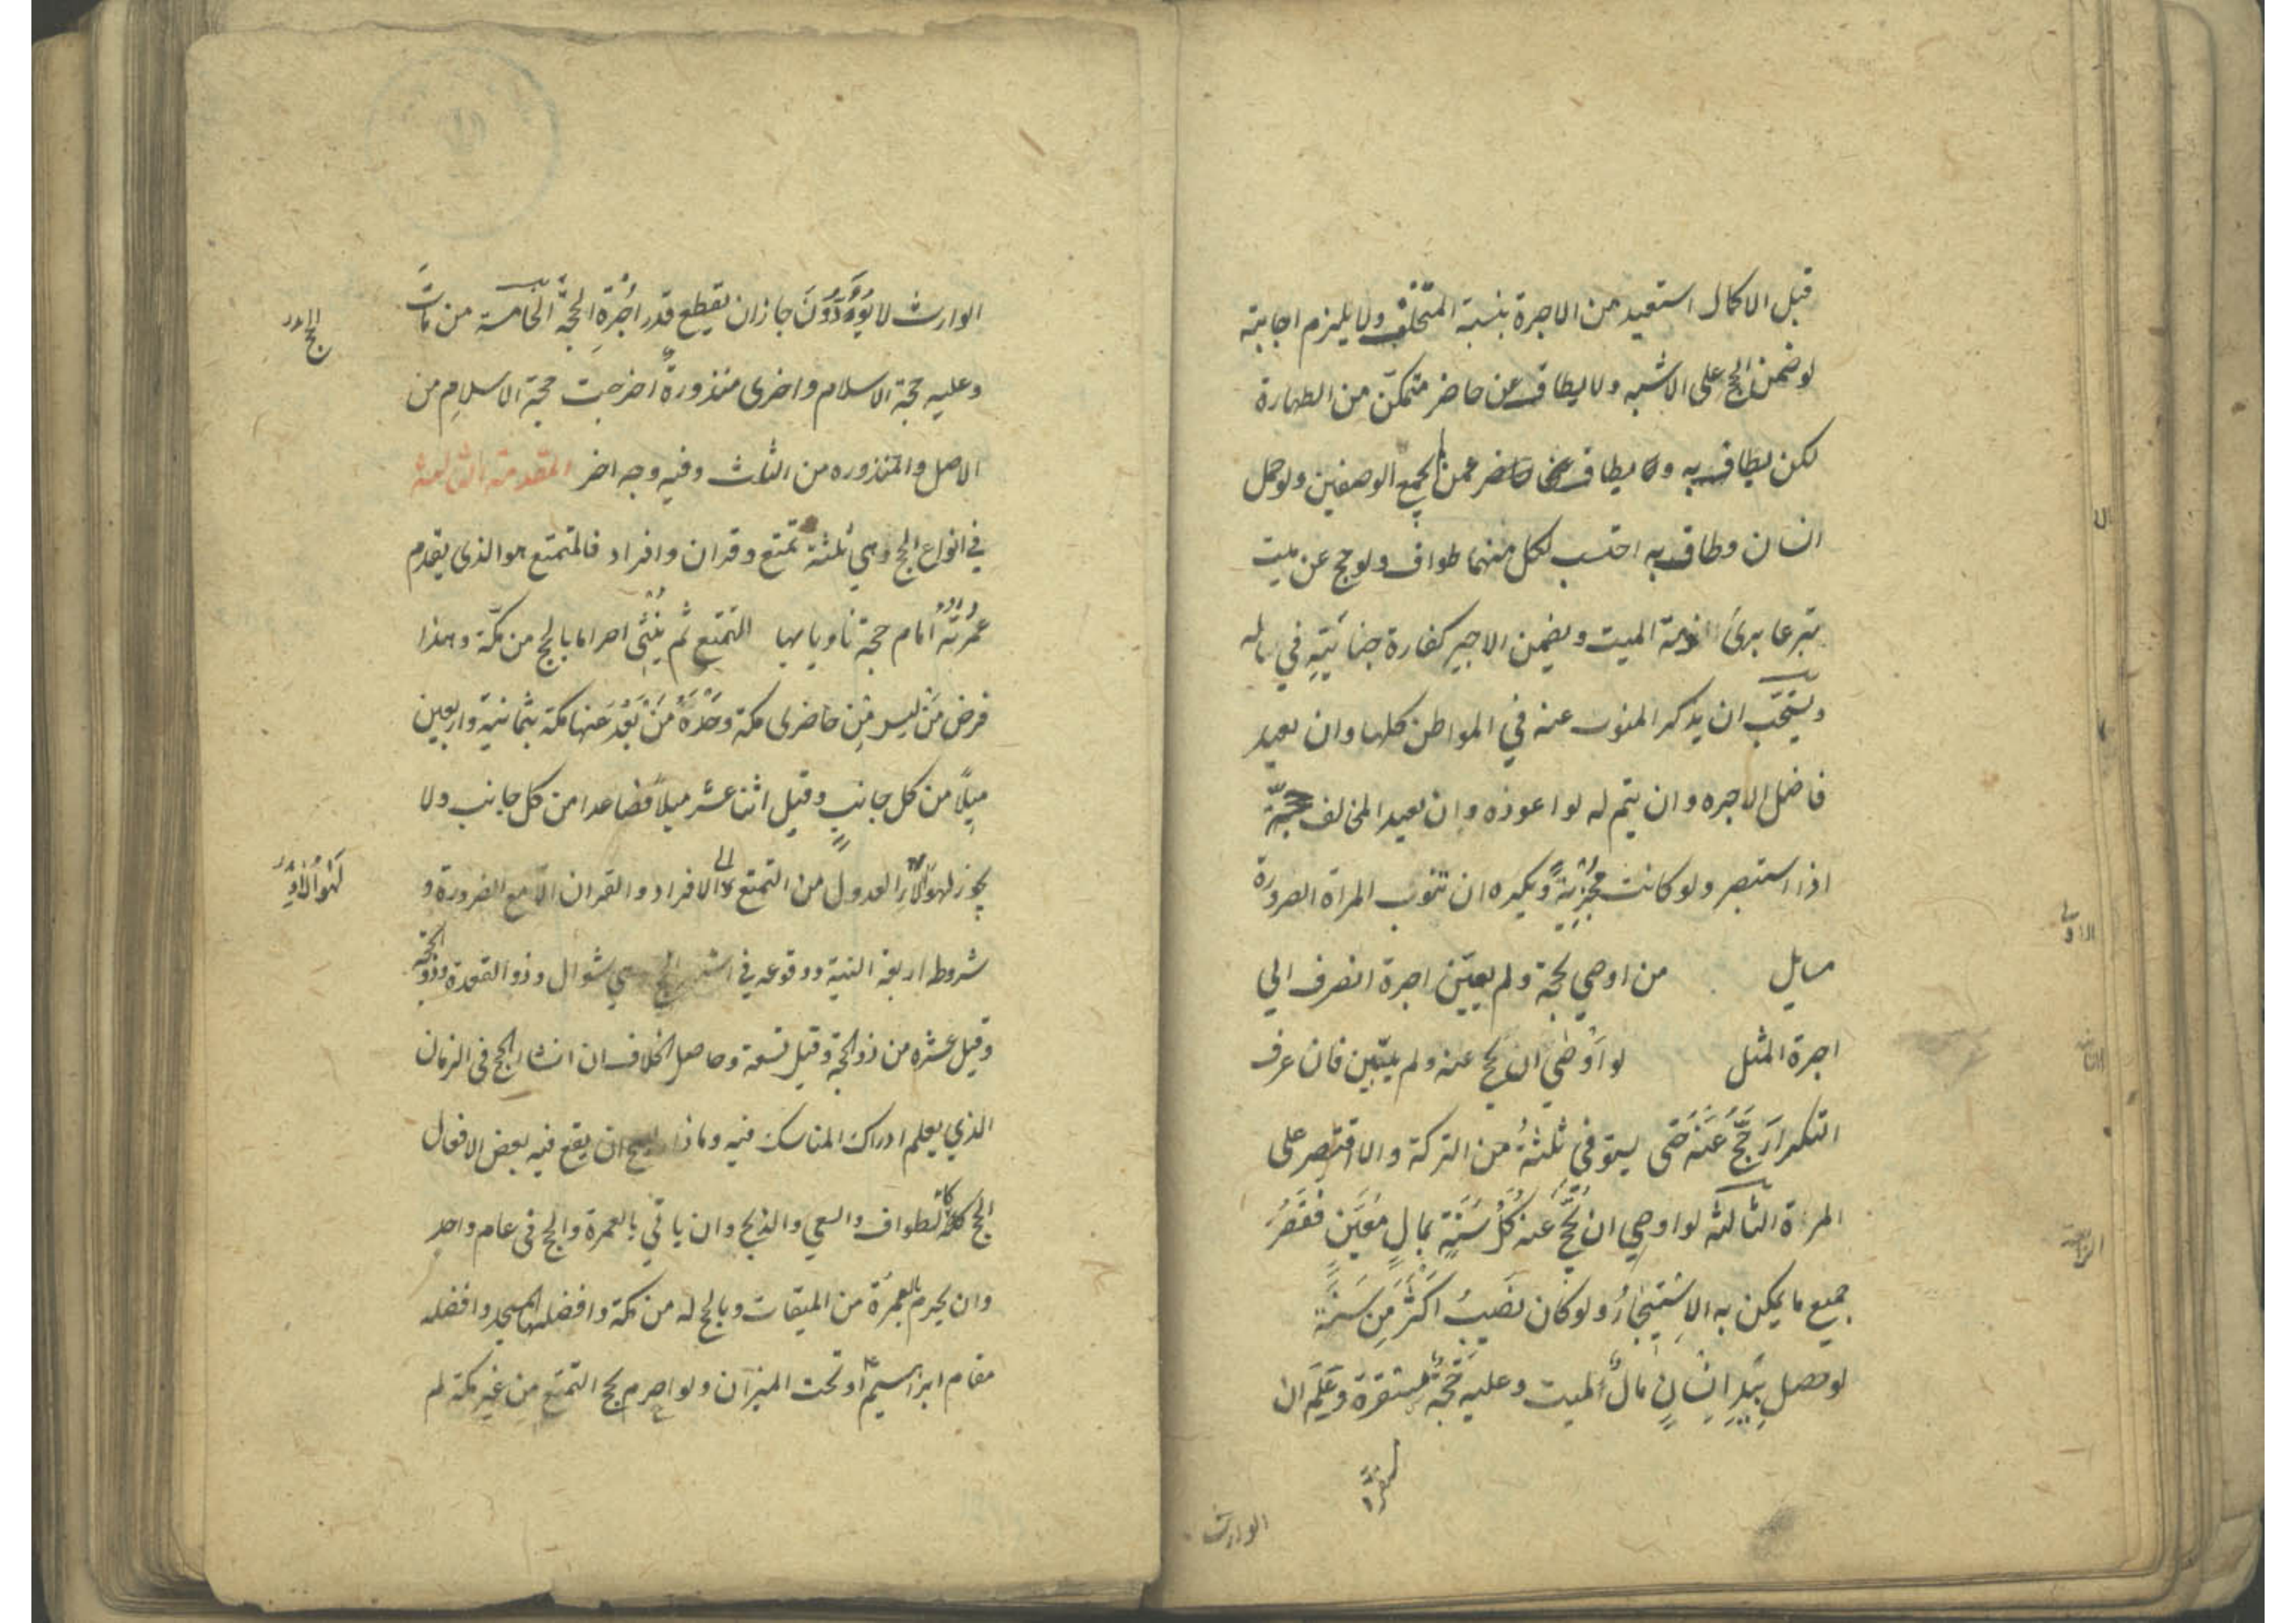 قبل الاكمال استعيد من الاجرة بنسبة المتخلف ولا يلزم اجابته
لو ضمن الحج على الاشبه ولا يطاف عن حاضر متمكن من الطهارة
لكن يطاف به ولا يطاف عن حاضر عمن لم يجمع الوصفين ولو حمل
انسان وطاف به احتسب لكل منهما طواف ولو حج عن ميت
تبرعا برئ ذمة الميت ويضمن الاجير كفارة جنايته في ماله
ويستحب ان يذكر المنوب عنه في المواطن كلها وان يعيد
فاضل الاجره وان يتم له لو اعوذه وان يعيد المخالف حجة
اذا استبصر ولو كانت مجزية ويكره ان تنوب المراة الصرورة
مسايل من اوصي بحجة ولم يعين اجرة انصرف الي
اجرة المثل لو اوصي ان يحج عنه ولم يبين فان عرف
التكرار حج عنه حتى يستوفي ثلثه من التركة والا اقتصر على
المراة الثالثه لو اوصي ان يحج عنه كل سنة بمال معين فقصر
جميع ما يمكن به الاستيجار ولو كان نصيب اكثر من سنة
لو حصل بيد انسان مال لميت وعليه حجة مستقرة وعلم ان
الوارث
الوارث لا يؤدون جاز ان يقطع قدر اجرة الحجة الخامسة من مات
وعليه حجة الاسلام واخرى منذورة اخرجت حجة الاسلام من
الاصل والمنذوره من الثلث وفيه وجه اخر المقدمة الثالثة
في انواع الحج وهي ثلثة تمتع وقران وافراد فالمتمتع هو الذى يقدم
عمرته امام حجة ناويا بها التمتع ثم ينشئ احراما بالحج من مكة وهذا
فرض من ليس من حاضرى مكة وحده من بعد عنها مكة بثمانية واربعين
ميلا من كل جانب وقيل اثنا عشر ميلا فصاعدا من كل جانب ولا
يجوز لهؤلاء العدول من التمتع الى الافراد والقران الا مع الضرورة و
شروطه اربعة النية ووقوعه في اشهر الحج وهي شوال وذو القعدة وذو الحجة
وقيل عشره من ذو الحجة وقيل تسعة وحاصل الخلاف ان انشا الحج في الزمان
الذي يعلم ادراك المناسك فيه وماذا يصح ان يقع فيه بعض الافعال
الحج كالطواف والسعي والذبح وان ياتي بالعمرة والحج في عام واحد
وان يحرم بالعمرة من الميقات وبالحج له من مكة وافضلها المسجد وافضله
مقام ابراهيم او تحت الميزان ولو احرم بحج التمتع من غير مكة لم